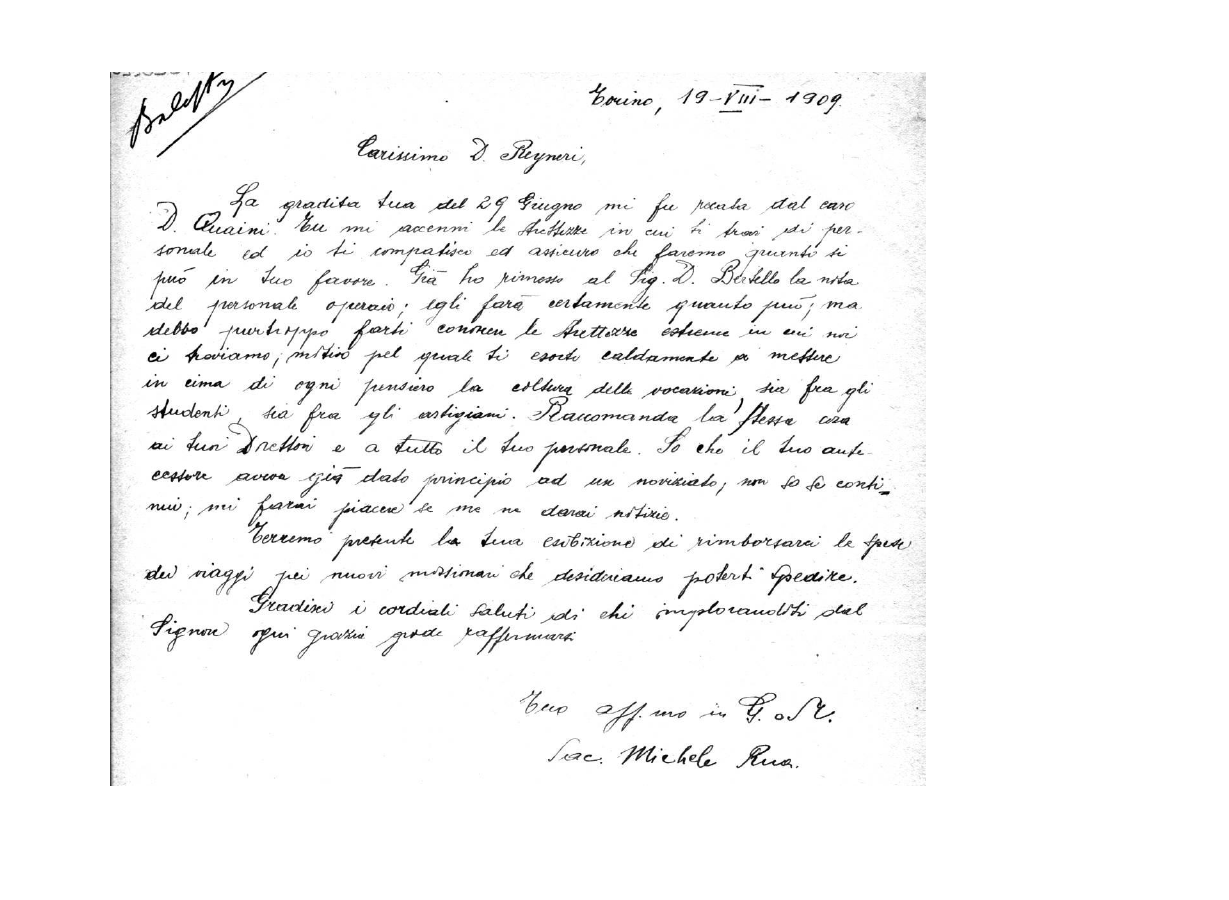 Torino, 19-VIII-1909.
Carissimo D. Reyneri,
La gradita tua del 29 Giugno mi fu recata dal caro
D. Quaini. Tu mi accenni le strettezze in cui ti trovi di per-
sonale ed io ti compatisco ed assicuro che faremo quanto si
può in tuo favore. Già ho rimesso al Sig. D. Bertello la nota
del personale operaio; egli farà certamente quanto può; ma
debbo purtroppo farti conoscere le strettezze estreme in cui noi
ci troviamo; motivo pel quale ti esorto caldamente a mettere
in cima di ogni pensiero la coltura delle vocazioni, sia fra gli
studenti, sia fra gli artigiani. Raccomanda la stessa cosa
ai tuoi Direttori e a tutto il tuo personale. So che il tuo ante-
cessore aveva già dato principio ad un noviziato; non so se conti-
nui; mi farai piacere se me ne darai notizie.
Terremo presente la tua esibizione di rimborsarci le spese
dei viaggi pei nuovi missionari che desideriamo poterti spedire.
Gradisci i cordiali saluti di chi implorandoti dal
Signore ogni grazia gode raffermarsi
Tuo aff.mo in G. e M.
Sac. Michele Rua.